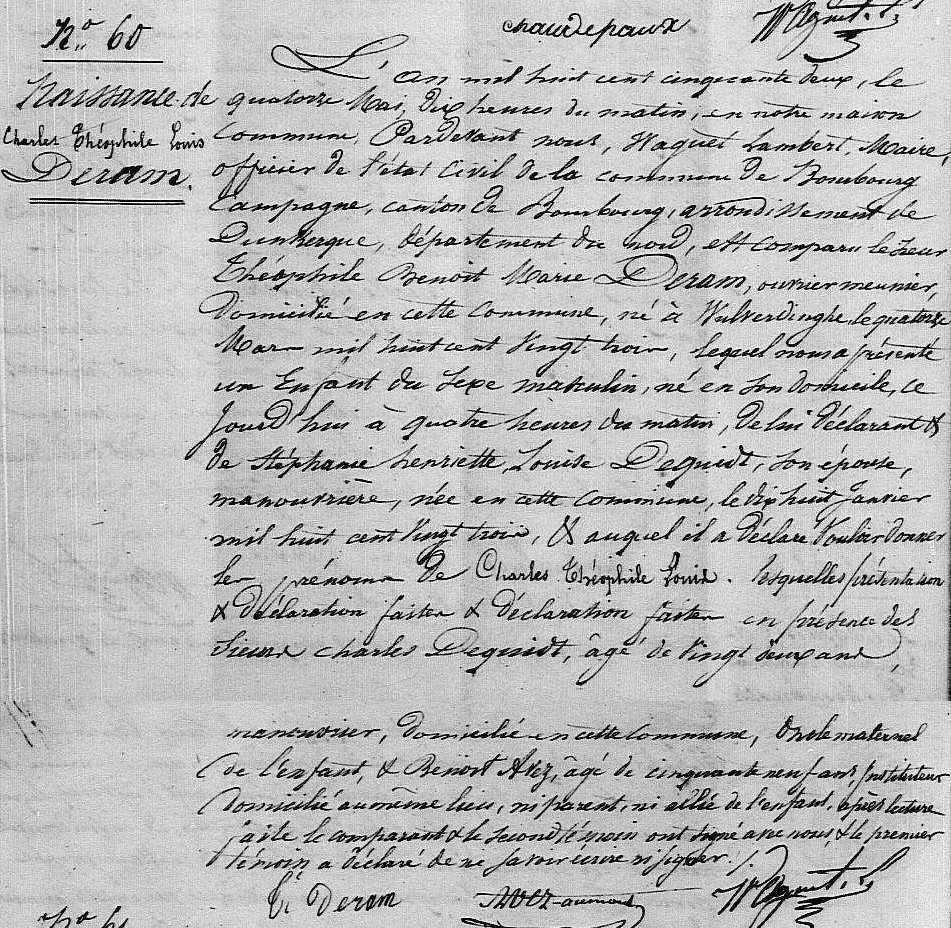 chaudepaux
W Aguet. L.
N.o 60
Naissance de
Charles Théophile Louis
Deram.
L'An mil huit cent cinquante deux, le
quatorze Mai, dix heures du matin, en notre maison
Commune, Pardevant nous, Waguet Lambert, Maire,
officier de l'état Civil de la commune de Bourbourg
Campagne, canton de Bourbourg, arrondissement de
Dunkerque, département du nord, est comparu le sieur
Théophile Benoit Marie Deram, ouvrier meunier,
domicilié en cette commune, né à Wulverdinghe, le quatorze
Mars mil huit cent vingt trois, lequel nous a présenté
un Enfant du sexe masculin, né en son domicile, ce
jourd'hui à quatre heures du matin, de lui déclarant &
de Stéphanie henriette Louise Dequidt, son épouse,
manouvrière, née en cette commune, le dix huit Janvier
mil huit cent vingt trois, & auquel il a déclaré vouloir donner
les prénoms de Charles Théophile Louis. lesquelles présentation
& déclaration faites & déclaration faites en présence des
Sieurs charles Dequidt, âgé de vingt deux ans,
manouvrier, domicilié en cette commune, Oncle maternel
de l'enfant, & Benoit Avez, âgé de cinquante neuf ans, Instituteur
domicilié au même lieu, ni parent, ni allié de l'enfant, après lecture
faite le comparant & le second témoin ont signé avec nous, & le premier
témoin a déclaré de ne savoir écrire ni signer./.
T. Deram
AVEZ
W Aguet. L.
N.o 61